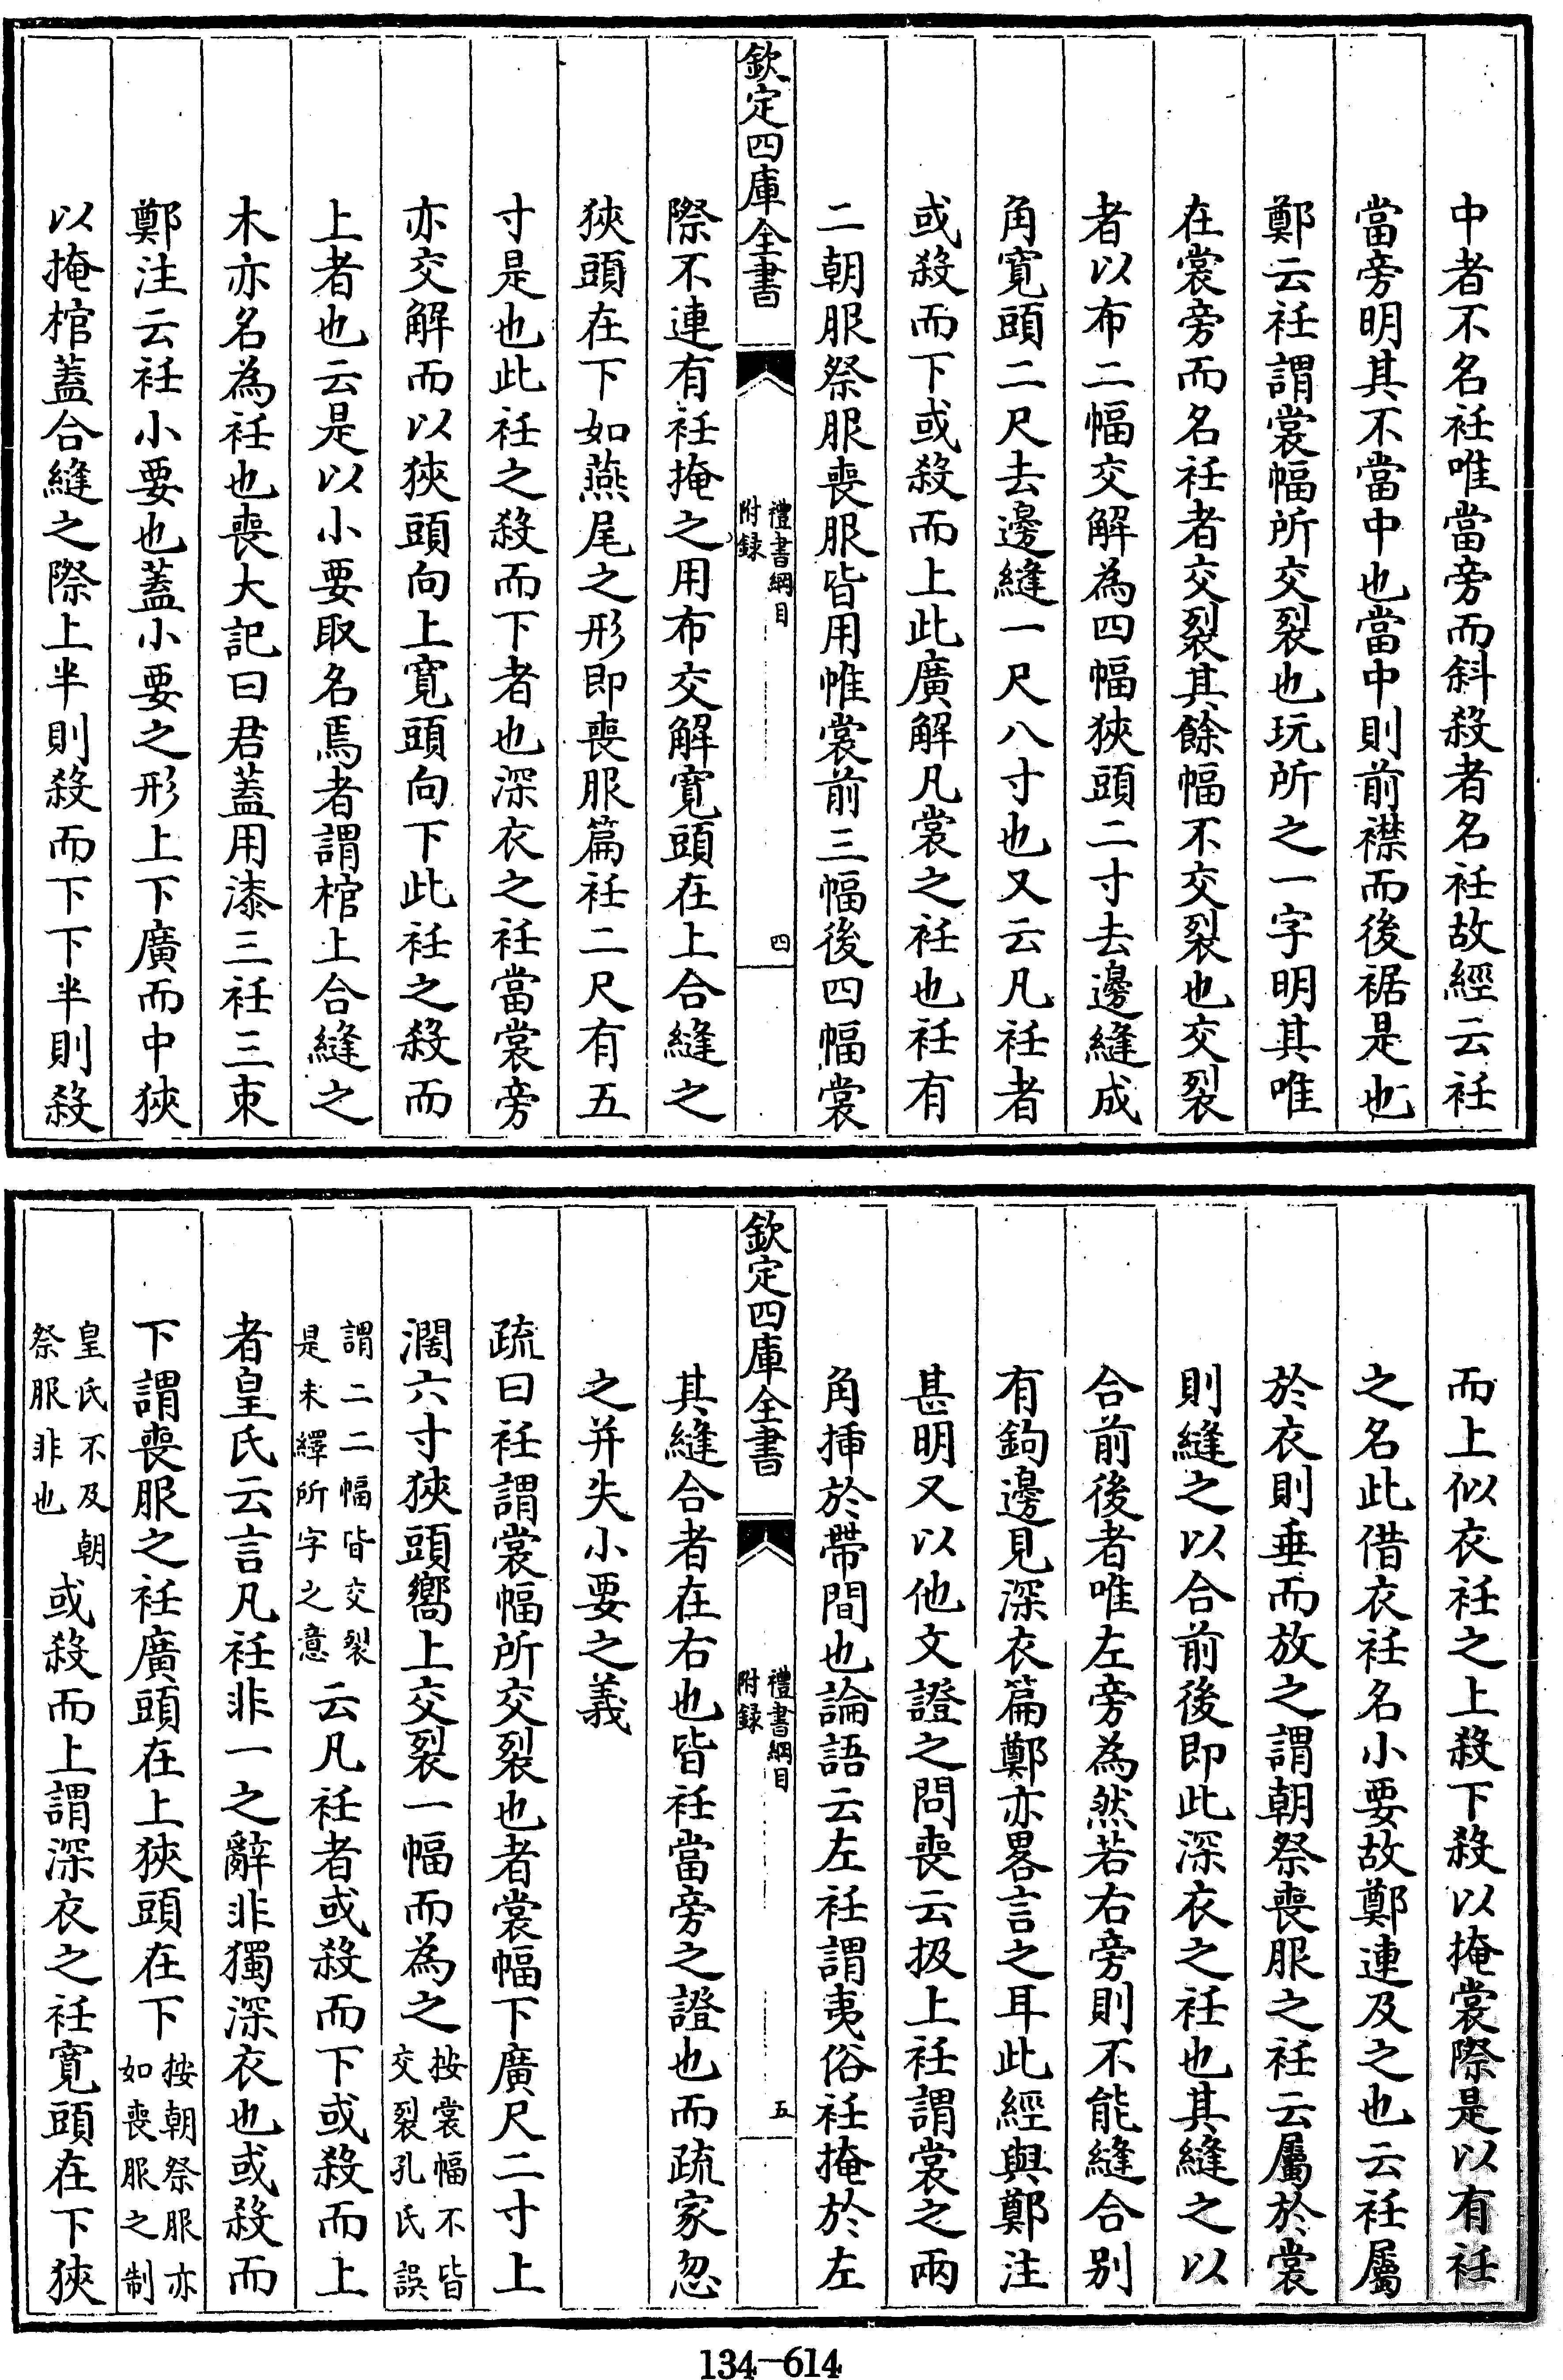 中者不名衽唯當旁而斜殺者名衽故經云衽
當旁明其不當中也當中則前襟而後裾是也
鄭云衽謂裳幅所交裂也玩所之一字明其唯
在裳旁而名衽者交裂其餘幅不交裂也交裂
者以布二幅交解為四幅狹頭二寸去邊縫成
角寬頭二尺去邊縫一尺八寸也又云凡衽者
或殺而下或殺而上此廣解凡裳之衽也衽有
二朝服祭服喪服皆用帷裳前三幅後四幅裳
欽定四庫全書
禮書綱目
附録
四
際不連有衽掩之用布交解寛頭在上合縫之
狹頭在下如燕尾之形即喪服篇衽二尺有五
寸是也此衽之殺而下者也深衣之衽當裳旁
亦交解而以狹頭向上寛頭向下此衽之殺而
上者也云是以小要取名焉者謂棺上合縫之
木亦名為衽也喪大記曰君蓋用漆三衽三束
鄭注云衽小要也蓋小要之形上下廣而中狹
以掩棺蓋合縫之際上半則殺而下下半則殺
而上似衣衽之上殺下殺以掩裳際是以有衽
之名此借衣衽名小要故鄭連及之也云衽屬
於衣則垂而放之謂朝祭喪服之衽云屬於裳
則縫之以合前後即此深衣之衽也其縫之以
合前後者唯左旁為然若右旁則不能縫合別
有鉤邊見深衣篇鄭亦畧言之耳此經與鄭注
甚明又以他文證之問喪云扱上衽謂裳之兩
角揷於帶間也論語云左衽謂夷俗衽掩於左
欽定四庫全書
禮書綱目
附録
五
其縫合者在右也皆衽當旁之證也而疏家忽
之并失小要之義
疏曰衽謂裳幅所交裂也者裳幅下廣尺二寸上
濶六寸狹頭嚮上交裂一幅而為之按裳幅不皆
交裂孔氏誤
謂二二幅皆交裂
是未繹所字之意云凡衽者或殺而下或殺而上
者皇氏云言凡衽非一之辭非獨深衣也或殺而
下謂喪服之衽廣頭在上狹頭在下按朝祭服亦
如喪服之制
皇氏不及朝
祭服非也或殺而上謂深衣之衽寛頭在下狹
134-614